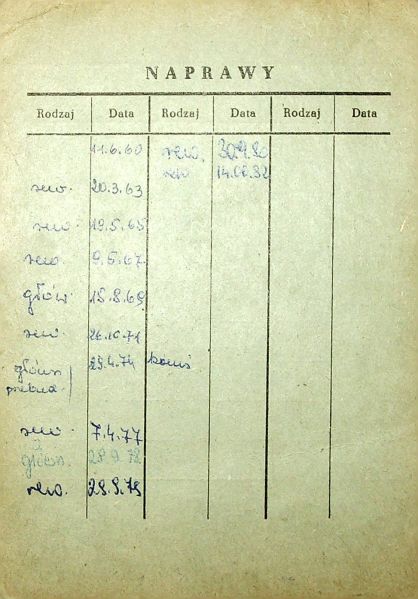 NAPRAWY
Rodzaj Data Rodzaj Data Rodzaj Data
11.6.60 rew. 30.9.80
rew 14.06.82
rew. 20.3.63
rew. 19.5.65
rew. 9.5.67
głów 18.8.69
rew. 26.10.71
główn 25.4.74
rew. 7.4.77
główn. 28.9.78
rew. 28.9.79